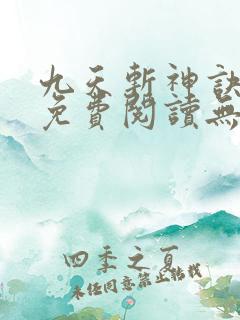 九天斬神訣
免費閱讀無
四季之夏
未經同意禁止轉載